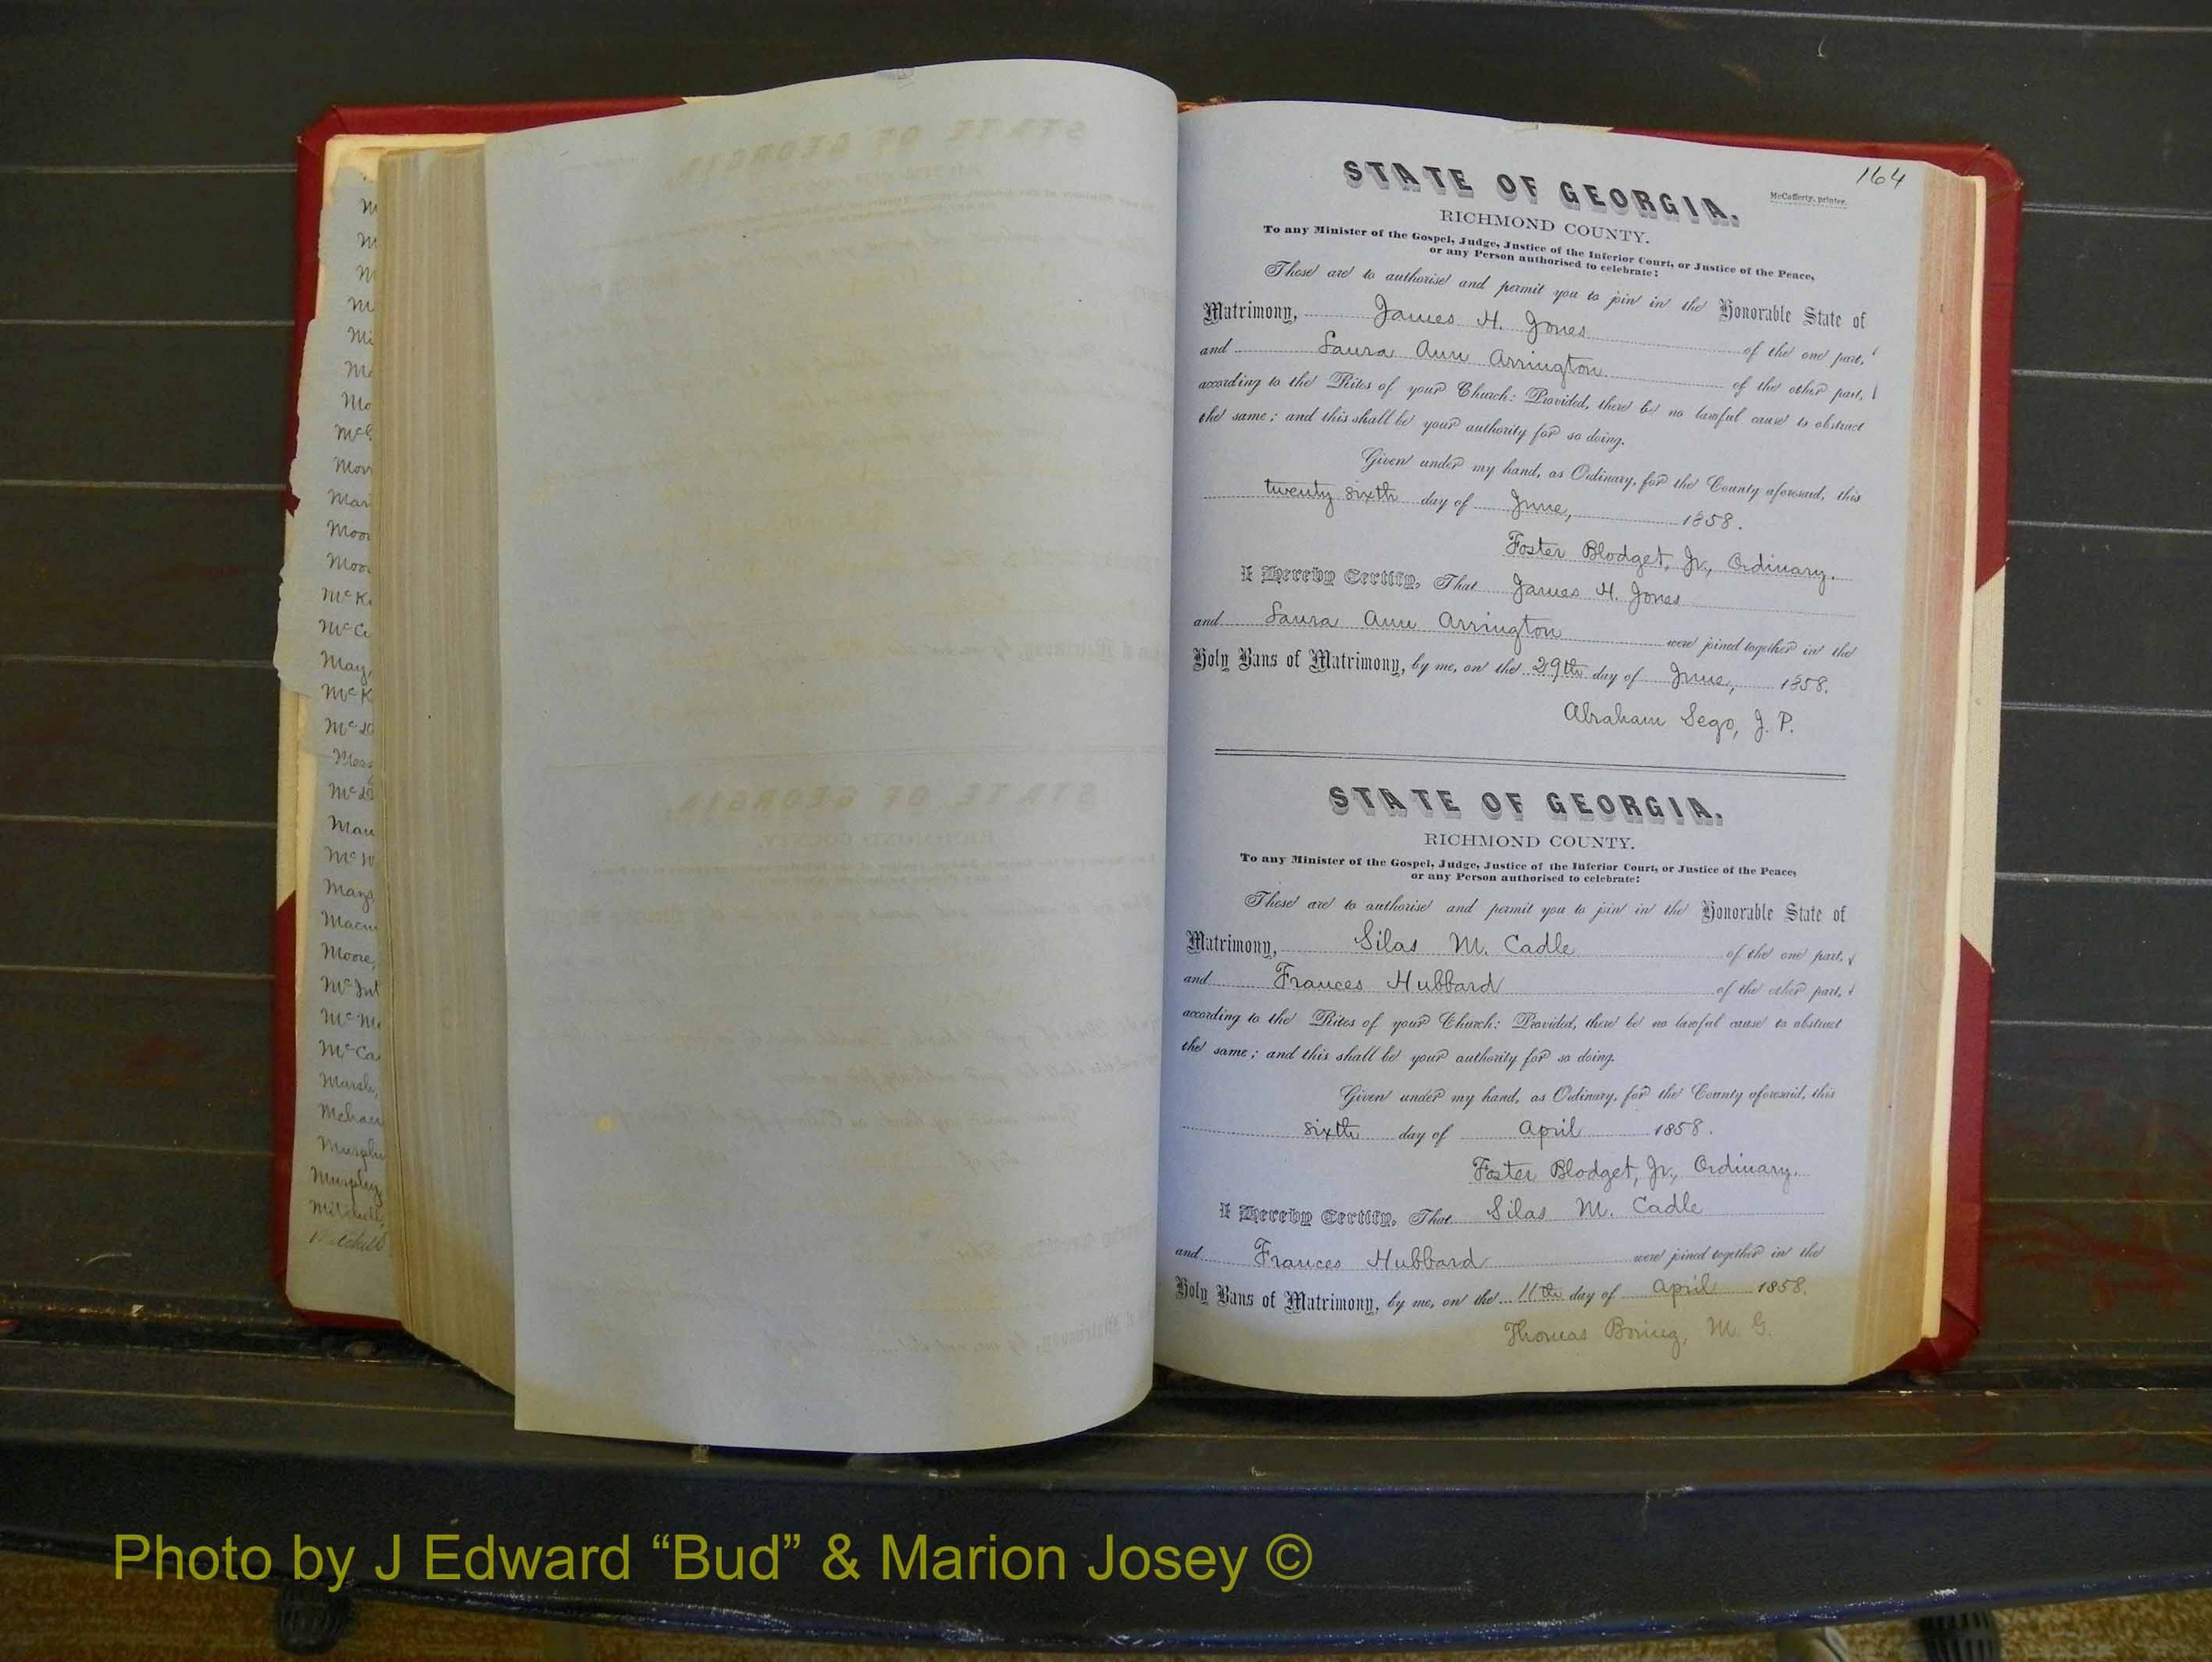 164
STATE OF GEORGIA,
McCafferty, printer.
RICHMOND COUNTY.
To any Minister of the Gospel, Judge, Justice of the Inferior Court, or Justice of the Peace,
or any Person authorised to celebrate:
These are to authorise and permit you to join in the Honorable State of
Matrimony, James H. Jones of the one part,
and Laura Ann Arrington of the other part,
according to the Rites of your Church: Provided, there be no lawful cause to obstruct
the same; and this shall be your authority for so doing.
Given under my hand, as Ordinary, for the County aforesaid, this
twenty sixth day of June, 1858.
Foster Blodget, Jr., Ordinary.
I Hereby Certify, That James H. Jones
and Laura Ann Arrington were joined together in the
Holy Bans of Matrimony, by me, on the 29th day of June, 1858.
Abraham Sego, J. P.
STATE OF GEORGIA,
RICHMOND COUNTY.
To any Minister of the Gospel, Judge, Justice of the Inferior Court, or Justice of the Peace,
or any Person authorised to celebrate:
These are to authorise and permit you to join in the Honorable State of
Matrimony, Silas M. Cadle of the one part,
and Frances Hubbard of the other part,
according to the Rites of your Church: Provided, there be no lawful cause to obstruct
the same; and this shall be your authority for so doing.
Given under my hand, as Ordinary, for the County aforesaid, this
sixth day of April 1858.
Foster Blodget, Jr., Ordinary.
I Hereby Certify, That Silas M. Cadle
and Frances Hubbard were joined together in the
Holy Bans of Matrimony, by me, on the 11th day of April 1858.
Thomas Boring, M. G.
May,
Moore,
Murphy
Mitchell,
Mitchell
Photo by J Edward “Bud” & Marion Josey ©